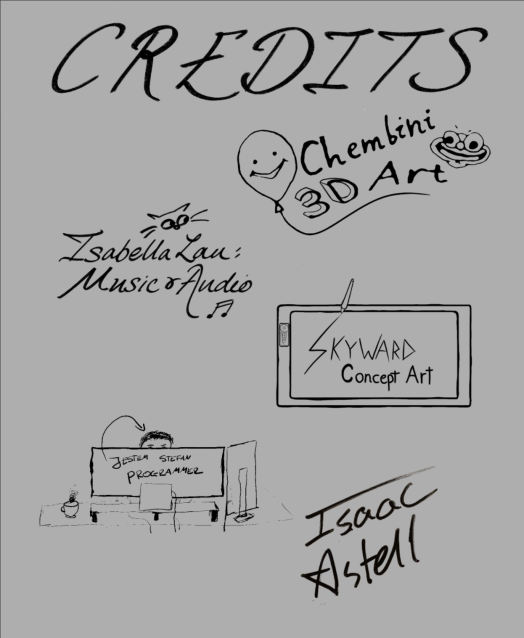 CREDITS
Chembini
3D Art
Isabella Lau:
Music & Audio
SKYWARD
Concept Art
JESTEM STEFAN
PROGRAMMER
Isaac
Astell